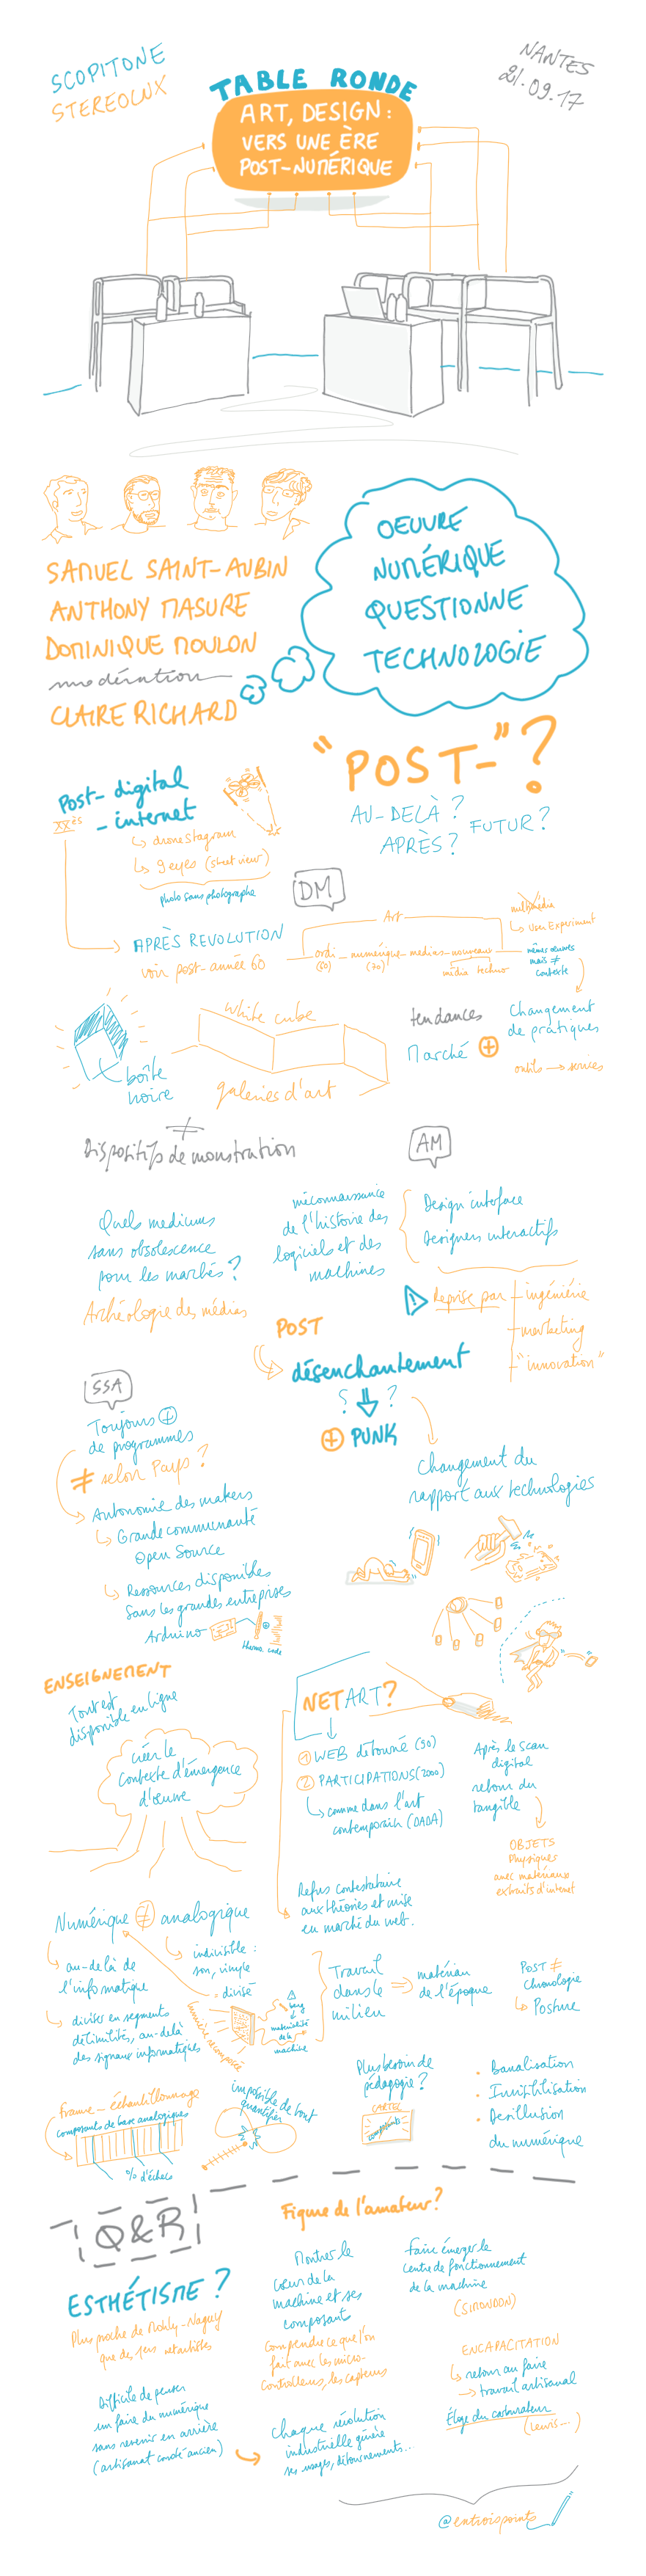 SCOPITONE
STEREOLUX
NANTES
21.09.17
TABLE RONDE
ART, DESIGN :
VERS UNE ÈRE
POST-NUMÉRIQUE
OEUVRE
NUMÉRIQUE
QUESTIONNE
TECHNOLOGIE
SAMUEL SAINT-AUBIN
ANTHONY MASURE
DOMINIQUE MOULON
modération
CLAIRE RICHARD
"POST-"?
AU-DELÀ ?
APRÈS ?
FUTUR ?
Post-digital
- internet
XXès
↳ dronestagram
↳ 9 eyes (street view)
photo sans photographe
DM
APRÈS REVOLUTION
voir post-année 60
Art
ordi - numérique - medias - nouveaux
(60)
(70)
média techno
multimédia
↳ User Experiment
mêmes œuvres
mais ≠
contexte
Changement
de pratiques
outils → services
tendances
Marché +
white cube
galeries d'art
boîte
noire
≠
Dispositifs de monstration
AM
Quels mediums
sans obsolescence
pour les marchés ?
Archéologie des médias
méconnaissance
de l'histoire des
logiciels et des
machines
Design interface
Designers interactifs
! Reprise par
- ingéniérie
- marketing
- "innovation"
POST
désenchantement
? ?
+ PUNK
Changement du
rapport aux technologies
SSA
Toujours +
de programmes
≠ selon Pays ?
Autonomie des makers
↳ Grande communauté
Open Source
↳ Ressources disponibles
Sans les grandes entreprises
Arduino
ENSEIGNEMENT
Tout est
disponible en ligne
créer le
contexte d'émergence
d'œuvre
NET ART ?
1 WEB détourné (90)
2 PARTICIPATIONS (2000)
↳ comme dans l'art
contemporain (DADA)
Refus contestataire
aux théories et mise
en marché du web.
Après le scan
digital
retour du
tangible
OBJETS
Physiques
avec matériaux
extraits d'internet
Numérique ≠ analogique
↳ au-delà de
l'informatique
↳ diviser en segments
délimités, au-delà
des signaux informatiques
↳ indivisible :
son, vinyle
= divisé
lumière recomposée
! bug
matérialité
de la
machine
Travail
dans le
milieu
⇒ matériau
de l'époque
POST ≠
chronologie
↳ Posture
frame - échantillonnage
composants de base analogiques
% d'échecs
impossible de tout
quantifier
Plus besoin de
pédagogie ?
CARTEL
composants
. Banalisation
. Invisibilisation
. Desillusion
du numérique
Q&R
Figure de l'amateur ?
ESTHÉTISME ?
Plus proche de Moholy-Nagy
que des 1ers netartistes
Montrer le
cœur de la
machine et ses
composants
Comprendre ce que l'on
fait avec les micro-
controlleurs, les capteurs
Faire émerger le
centre de fonctionnement
de la machine
(SIMONDON)
ENCAPACITATION
↳ retour au faire
→ travail artisanal
Éloge du carburateur
Difficile de penser
un faire du numérique
sans revenir en arrière
(artisanat corrélé ancien)
Chaque révolution
industrielle génère
ses usages, détournements...
@entroispoints